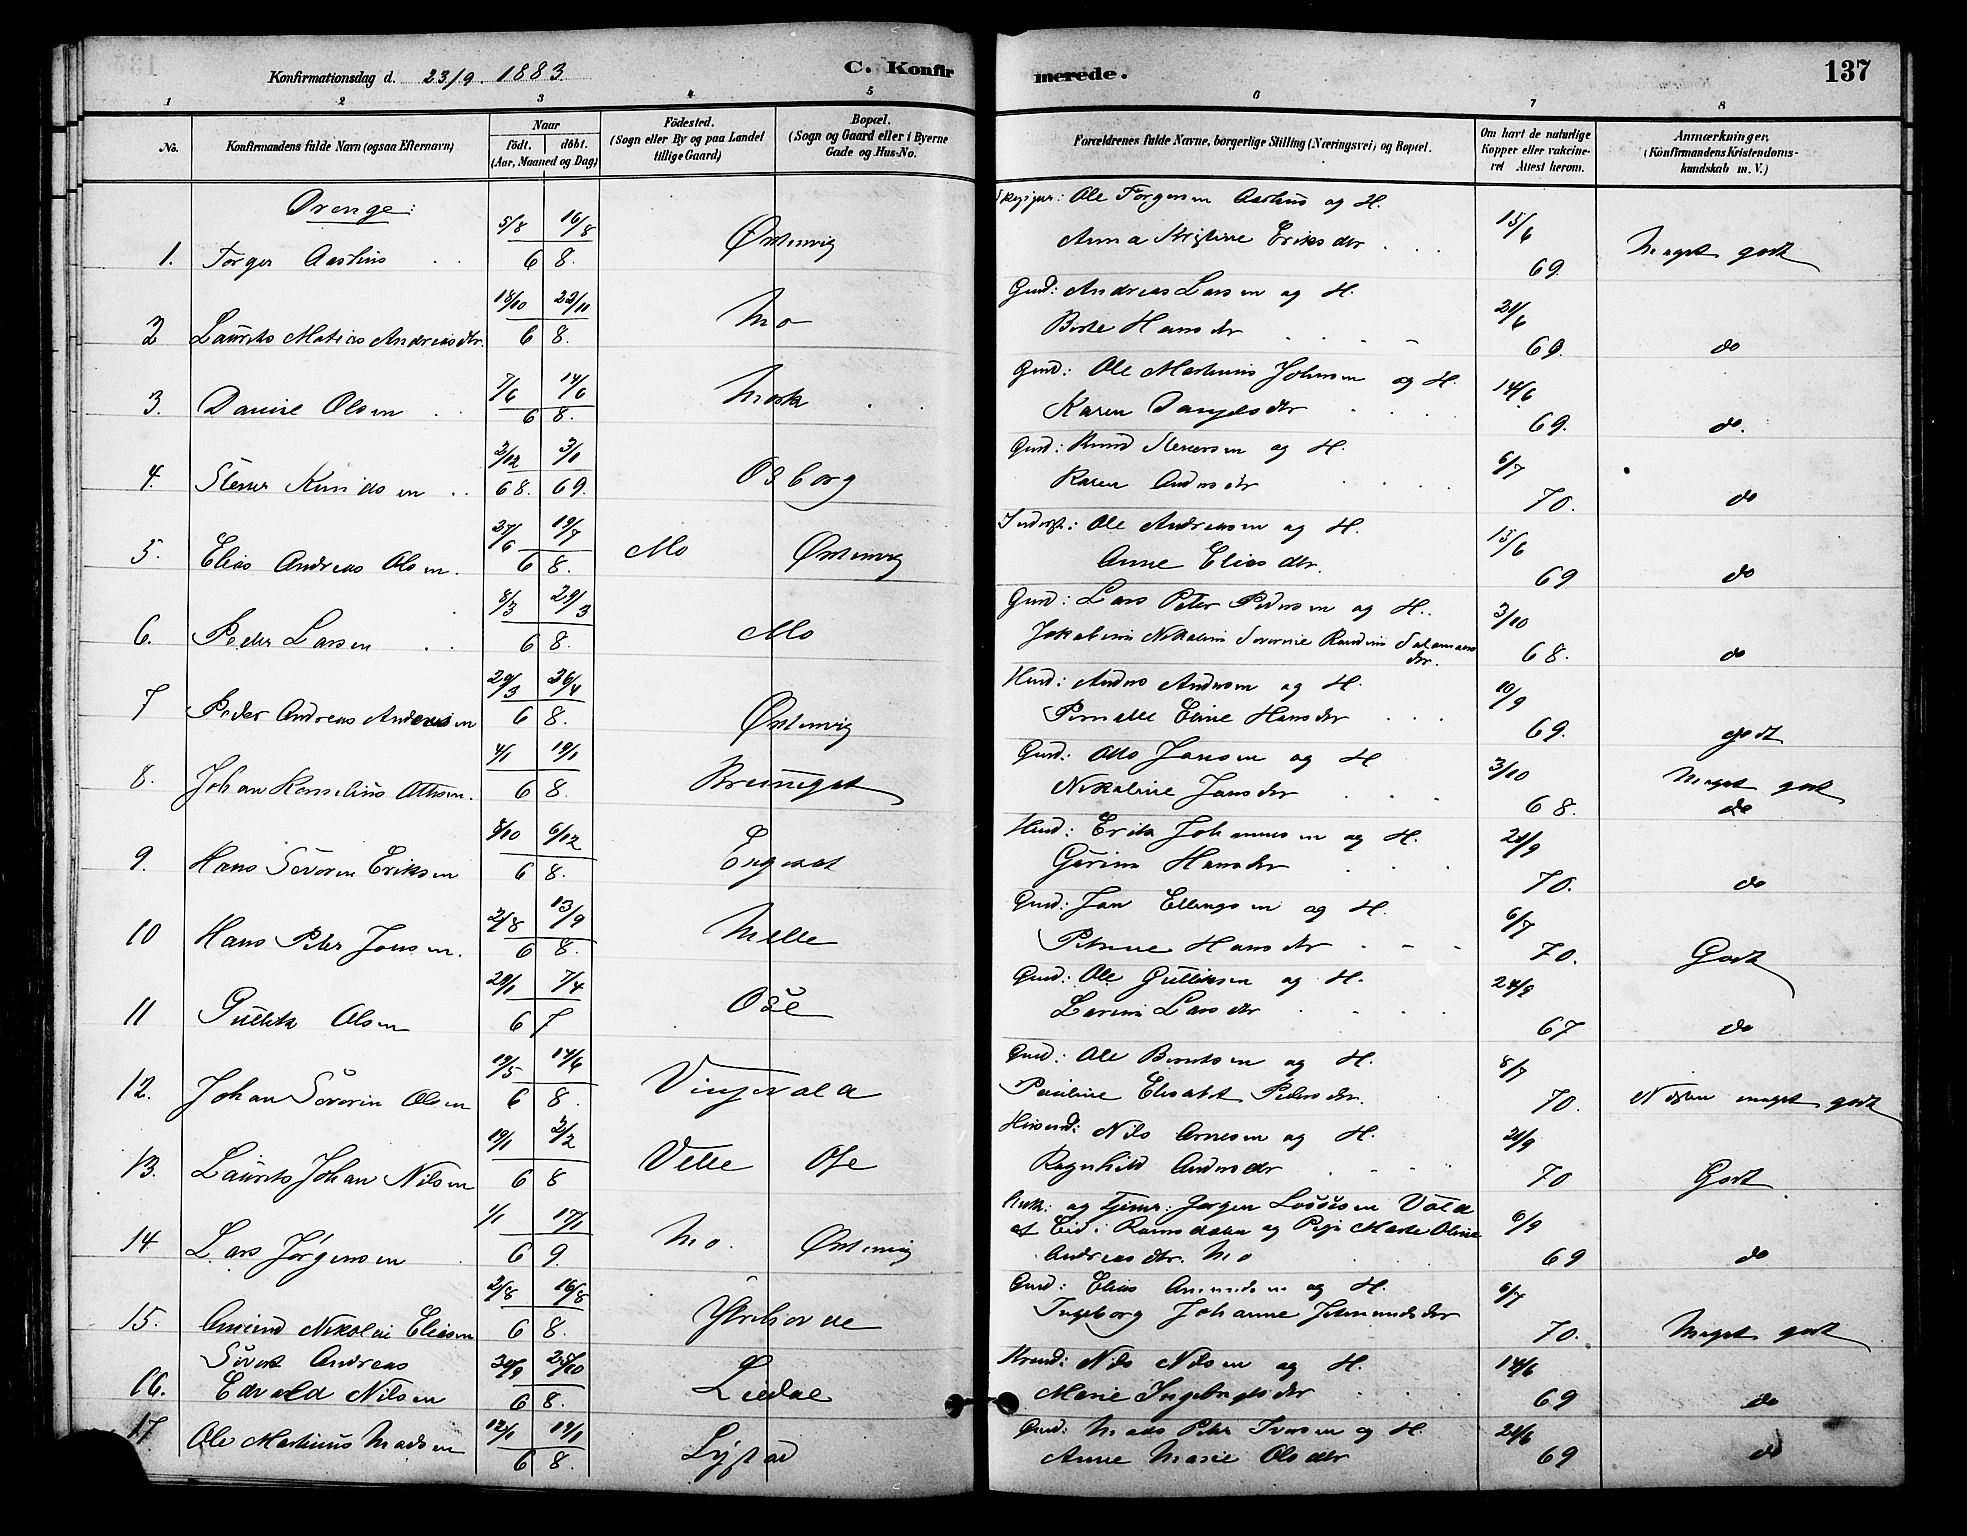 137
Konfirmationsdag d. 23/9 1883
C. Konfirmerede.
1 2 3 4 5 6 7 8
No.
Konfirmandens fulde Navn (ogsaa Efternavn)
Naar
født. døbt.
(Aar, Maaned og Dag)
Fødested.
(Sogn eller By og paa Landet
tillige Gaard)
Bopæl.
(Sogn og Gaard eller i Byerne
Gade og Hus-No.
Forældrenes fulde Navne, borgerlige Stilling (Næringsvei) og Bopæl.
Om havt de naturlige
Kopper eller vakcine-
ret Attest herom.
Anmærkninger,
(Konfirmandens Kristendoms-
kundskab m. V.)
Drenge:
5/8 16/8 Ole Torgersen Aarhus og H. 15/6
1. Torger Aarhus 68. Østenvig Anna Kristine Eriksdtr 69. Meget godt
18/10 22/11 Gmd: Andreas Larsen og H. 21/6
2 Laurits Matias Andreasdtr. 68. Mo Berte Hansdtr 69. do
7/6 14/6 Gmd: Ole Martinus Johnsen og H. 14/6
3. Daniel Olsen 68. Mork Karen Danielsdtr 69. do.
2/12 3/1 Gmd: Knud Stenersen og H. 6/7
4. Stener Knudsen 68. 69. Osborg Karen Andersdtr 70. do
27/6 19/7 Inderst: Ole Andreasen og H. 15/6
5. Elias Andreas Olsen. 68. Mo Østenvig Anne Eliasdtr. 69 do
8/3 29/3 Gmd: Lars Peter Pedersen og H. 3/10
6. Peder Larsen 68. Mo Jakobine Nikoline Severine Randine Salamons
dtr. 68. do
29/3 26/4 Hmd: Anders Andersen og H. 10/9
7 Peder Andreas Andersen 68. Østenvig Pernelle Eline Hansdtr 69. godt
4/1 19/1 Gmd: Otto Jansen og H 3/10
8. Johan Kornelius Ottosen. 68. Nikoline Jansdtr 68. Meget godt
8/10 6/12 Hmd: Erik Johannesen og H. 21/9 do
9. Hans Severin Eriksen 68. Engeset Gurine Hansdtr 70. do
2/8 13/9 Gmd: Jon Ellingsen og H. 6/7
10 Hans Peter Jonsen. 68. Melle Petrine Hansdtr 70. Godt
20/1 7/4 Gmd: Ole Gulliksen og H. 24/9
11 Gullik Olsen 67 Ose Larine Larsdtr 67 do
19/5 14/6 Gmd: Ole Berntsen og H. 8/7
12. Johan Severin Olsen 68. Vingevold Pauline Elisabet Pedersdtr. 70. Næsten meget godt
19/1 2/2 Husmd: Nils Arnesen og H. 21/9
13. Laurits Johan Nilsen 68 Velle Ose Ragnhild Andersdtr 70 Godt
1/1 17/1 og Pige Marte Oline 6/9
14 Lars Jørgensen 69. Mo. Østenvig Andreasdtr. Mo 69 do
2/8 16/8 Gmd: Elias Amundsen og H. 6/7
15. Amund Nikolai Eliasen 68. Ytrehovde Ingeborg Johanne 70. Meget godt
Sivert Andreas 30/9 25/10 Nils Nilsen og H. 14/6
16. Edvald Nilsen 68. Liedal Marie Ingebrigtsdtr 69 do
17. Ole Martinus Madsen 12/1 19/1 Gmd: Mads Peter Iversen og H. 21/6
68. Lystad Anne Marie Olsdtr 69 do